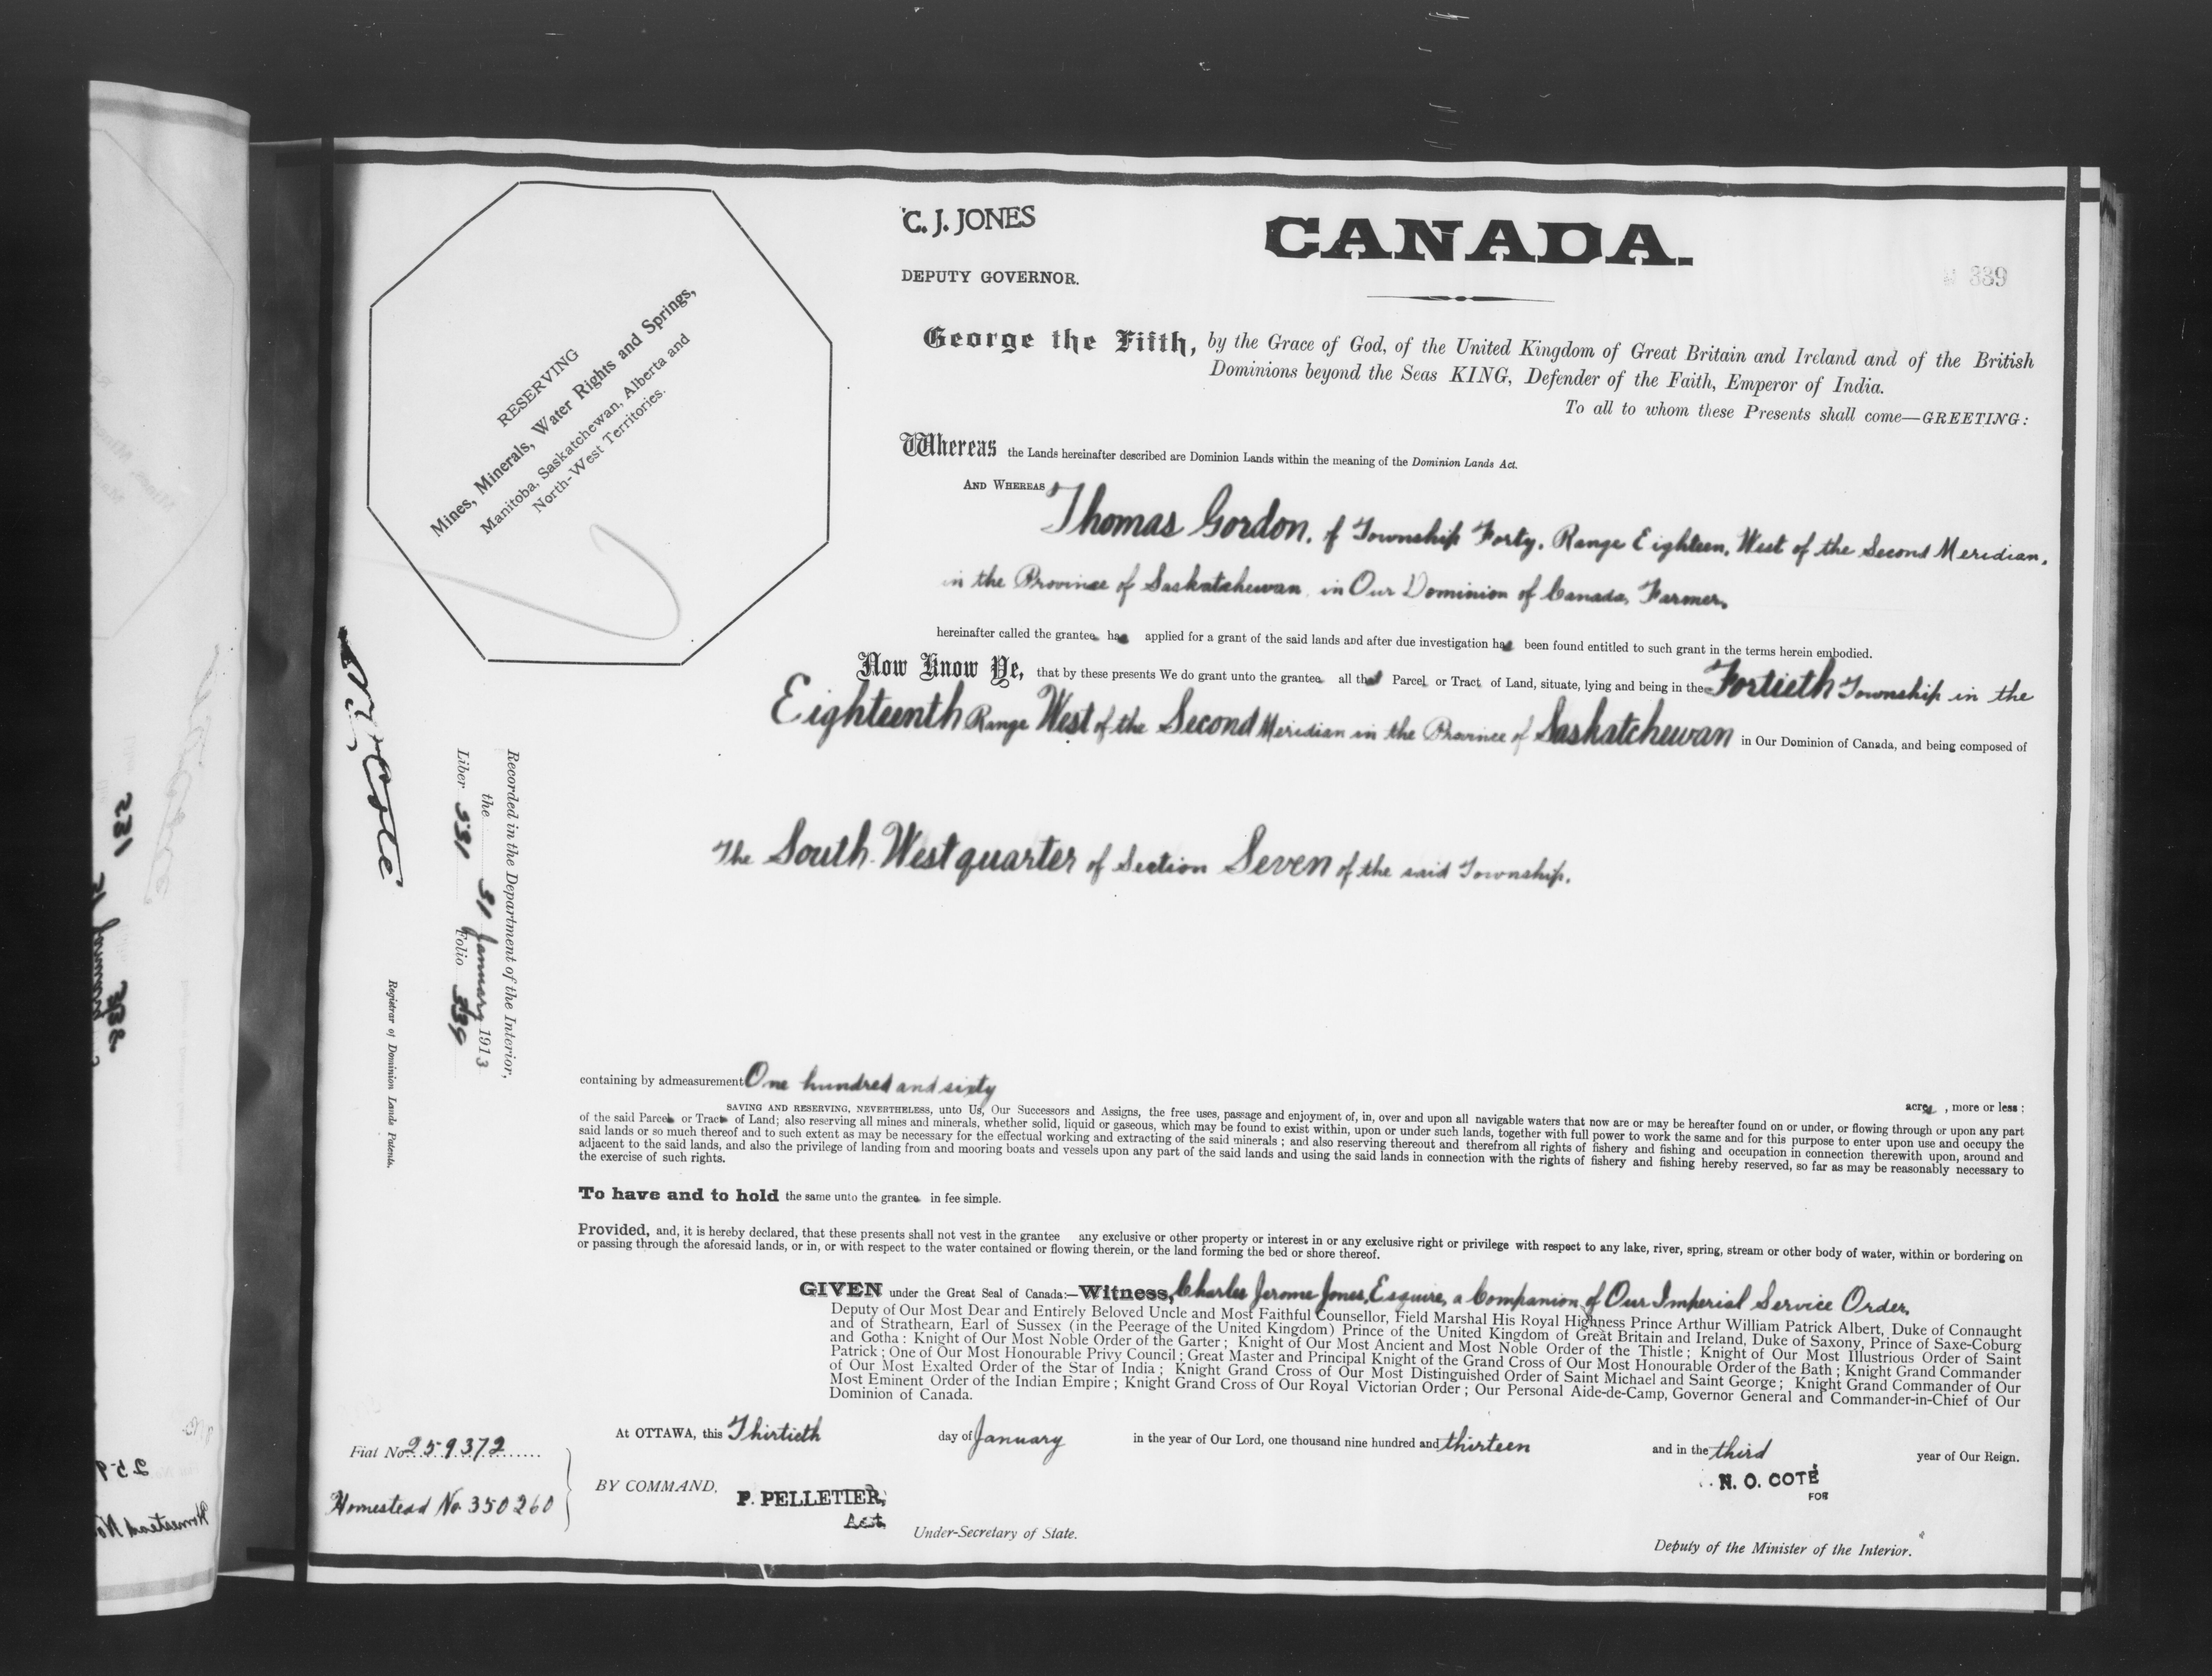 C. J. JONES
DEPUTY GOVERNOR.
CANADA.
339
RESERVING
Mines, Minerals, Water Rights and Springs,
Manitoba, Saskatchewan, Alberta and
North-West Territories.
George the Fifth, by the Grace of God, of the United Kingdom of Great Britain and Ireland and of the British
Dominions beyond the Seas KING, Defender of the Faith, Emperor of India.
To all to whom these Presents shall come—GREETING:
Whereas the Lands hereinafter described are Dominion Lands within the meaning of the Dominion Lands Act.
AND WHEREAS Thomas Gordon, of Township Forty, Range Eighteen, West of the Second Meridian,
in the Province of Saskatchewan, in Our Dominion of Canada, Farmer,
hereinafter called the grantee has applied for a grant of the said lands and after due investigation has been found entitled to such grant in the terms herein embodied.
Now Know Ye, that by these presents We do grant unto the grantee all that Parcel or Tract of Land, situate, lying and being in the Fortieth Township in the
Eighteenth Range West of the Second Meridian in the Province of Saskatchewan in Our Dominion of Canada, and being composed of
The South West quarter of Section Seven of the said Township.
Recorded in the Department of the Interior,
the 31 January 1913
Liber 531 Folio 339
N. O. Coté
Registrar of Dominion Lands Patents.
containing by admeasurement One hundred and sixty acres, more or less:
SAVING AND RESERVING, NEVERTHELESS, unto Us, Our Successors and Assigns, the free uses, passage and enjoyment of, in, over and upon all navigable waters that now are or may be hereafter found on or under, or flowing through or upon any part
of the said Parcel or Tract of Land; also reserving all mines and minerals, whether solid, liquid or gaseous, which may be found to exist within, upon or under such lands, together with full power to work the same and for this purpose to enter upon use and occupy the
said lands or so much thereof and to such extent as may be necessary for the effectual working and extracting of the said minerals; and also reserving thereout and therefrom all rights of fishery and fishing and occupation in connection therewith upon, around and
adjacent to the said lands, and also the privilege of landing from and mooring boats and vessels upon any part of the said lands and using the said lands in connection with the rights of fishery and fishing hereby reserved, so far as may be reasonably necessary to
the exercise of such rights.
To have and to hold the same unto the grantee in fee simple.
Provided, and, it is hereby declared, that these presents shall not vest in the grantee any exclusive or other property or interest in or any exclusive right or privilege with respect to any lake, river, spring, stream or other body of water, within or bordering on
or passing through the aforesaid lands, or in, or with respect to the water contained or flowing therein, or the land forming the bed or shore thereof.
GIVEN under the Great Seal of Canada:—Witness, Charles Jerome Jones, Esquire, a Companion of Our Imperial Service Order,
Deputy of Our Most Dear and Entirely Beloved Uncle and Most Faithful Counsellor, Field Marshal His Royal Highness Prince Arthur William Patrick Albert, Duke of Connaught
and of Strathearn, Earl of Sussex (in the Peerage of the United Kingdom) Prince of the United Kingdom of Great Britain and Ireland, Duke of Saxony, Prince of Saxe-Coburg
and Gotha: Knight of Our Most Noble Order of the Garter; Knight of Our Most Ancient and Most Noble Order of the Thistle; Knight of Our Most Illustrious Order of Saint
Patrick; One of Our Most Honourable Privy Council; Great Master and Principal Knight of the Grand Cross of Our Most Honourable Order of the Bath; Knight Grand Commander
of Our Most Exalted Order of the Star of India; Knight Grand Cross of Our Most Distinguished Order of Saint Michael and Saint George; Knight Grand Commander of Our
Most Eminent Order of the Indian Empire; Knight Grand Cross of Our Royal Victorian Order; Our Personal Aide-de-Camp, Governor General and Commander-in-Chief of Our
Dominion of Canada.
At OTTAWA, this Thirtieth day of January in the year of Our Lord, one thousand nine hundred and thirteen and in the third year of Our Reign.
Fiat No. 259372
Homestead No. 350260
BY COMMAND,
P. PELLETIER,
Act.
Under-Secretary of State.
N. O. COTÉ
FOR
Deputy of the Minister of the Interior.